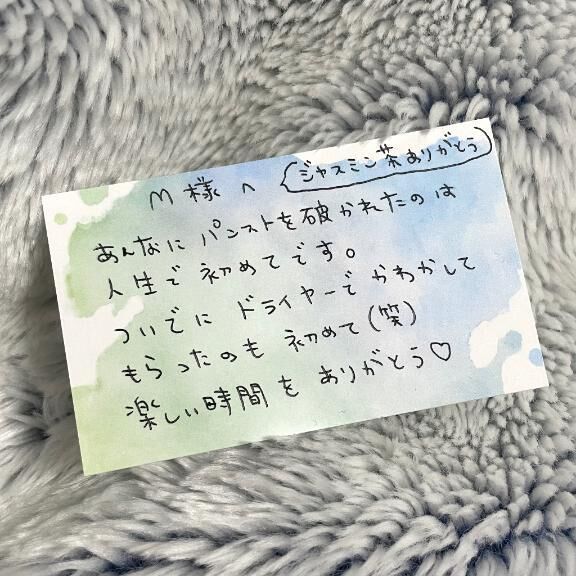 M様へ
ジャスミン茶ありがとう
あんなに パンストを破かれたのは
人生で 初めてです。
ついでに ドライヤーで かわかして
もらったのも 初めて(笑)
楽しい時間を ありがとう♡